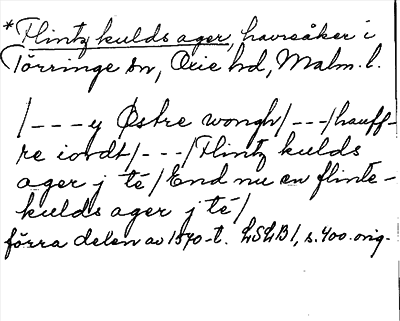 *Flintz kulds ager, havreåker i
Törringe sn, Oxie hd, Malm. l.
/---y Østre wongh/---/hauff-
re iordt/---/Flintz kulds
ager j té/End nu en flinte-
kulds ager j té/
förra delen av 1570-t. LSLB1, s. 400. orig.